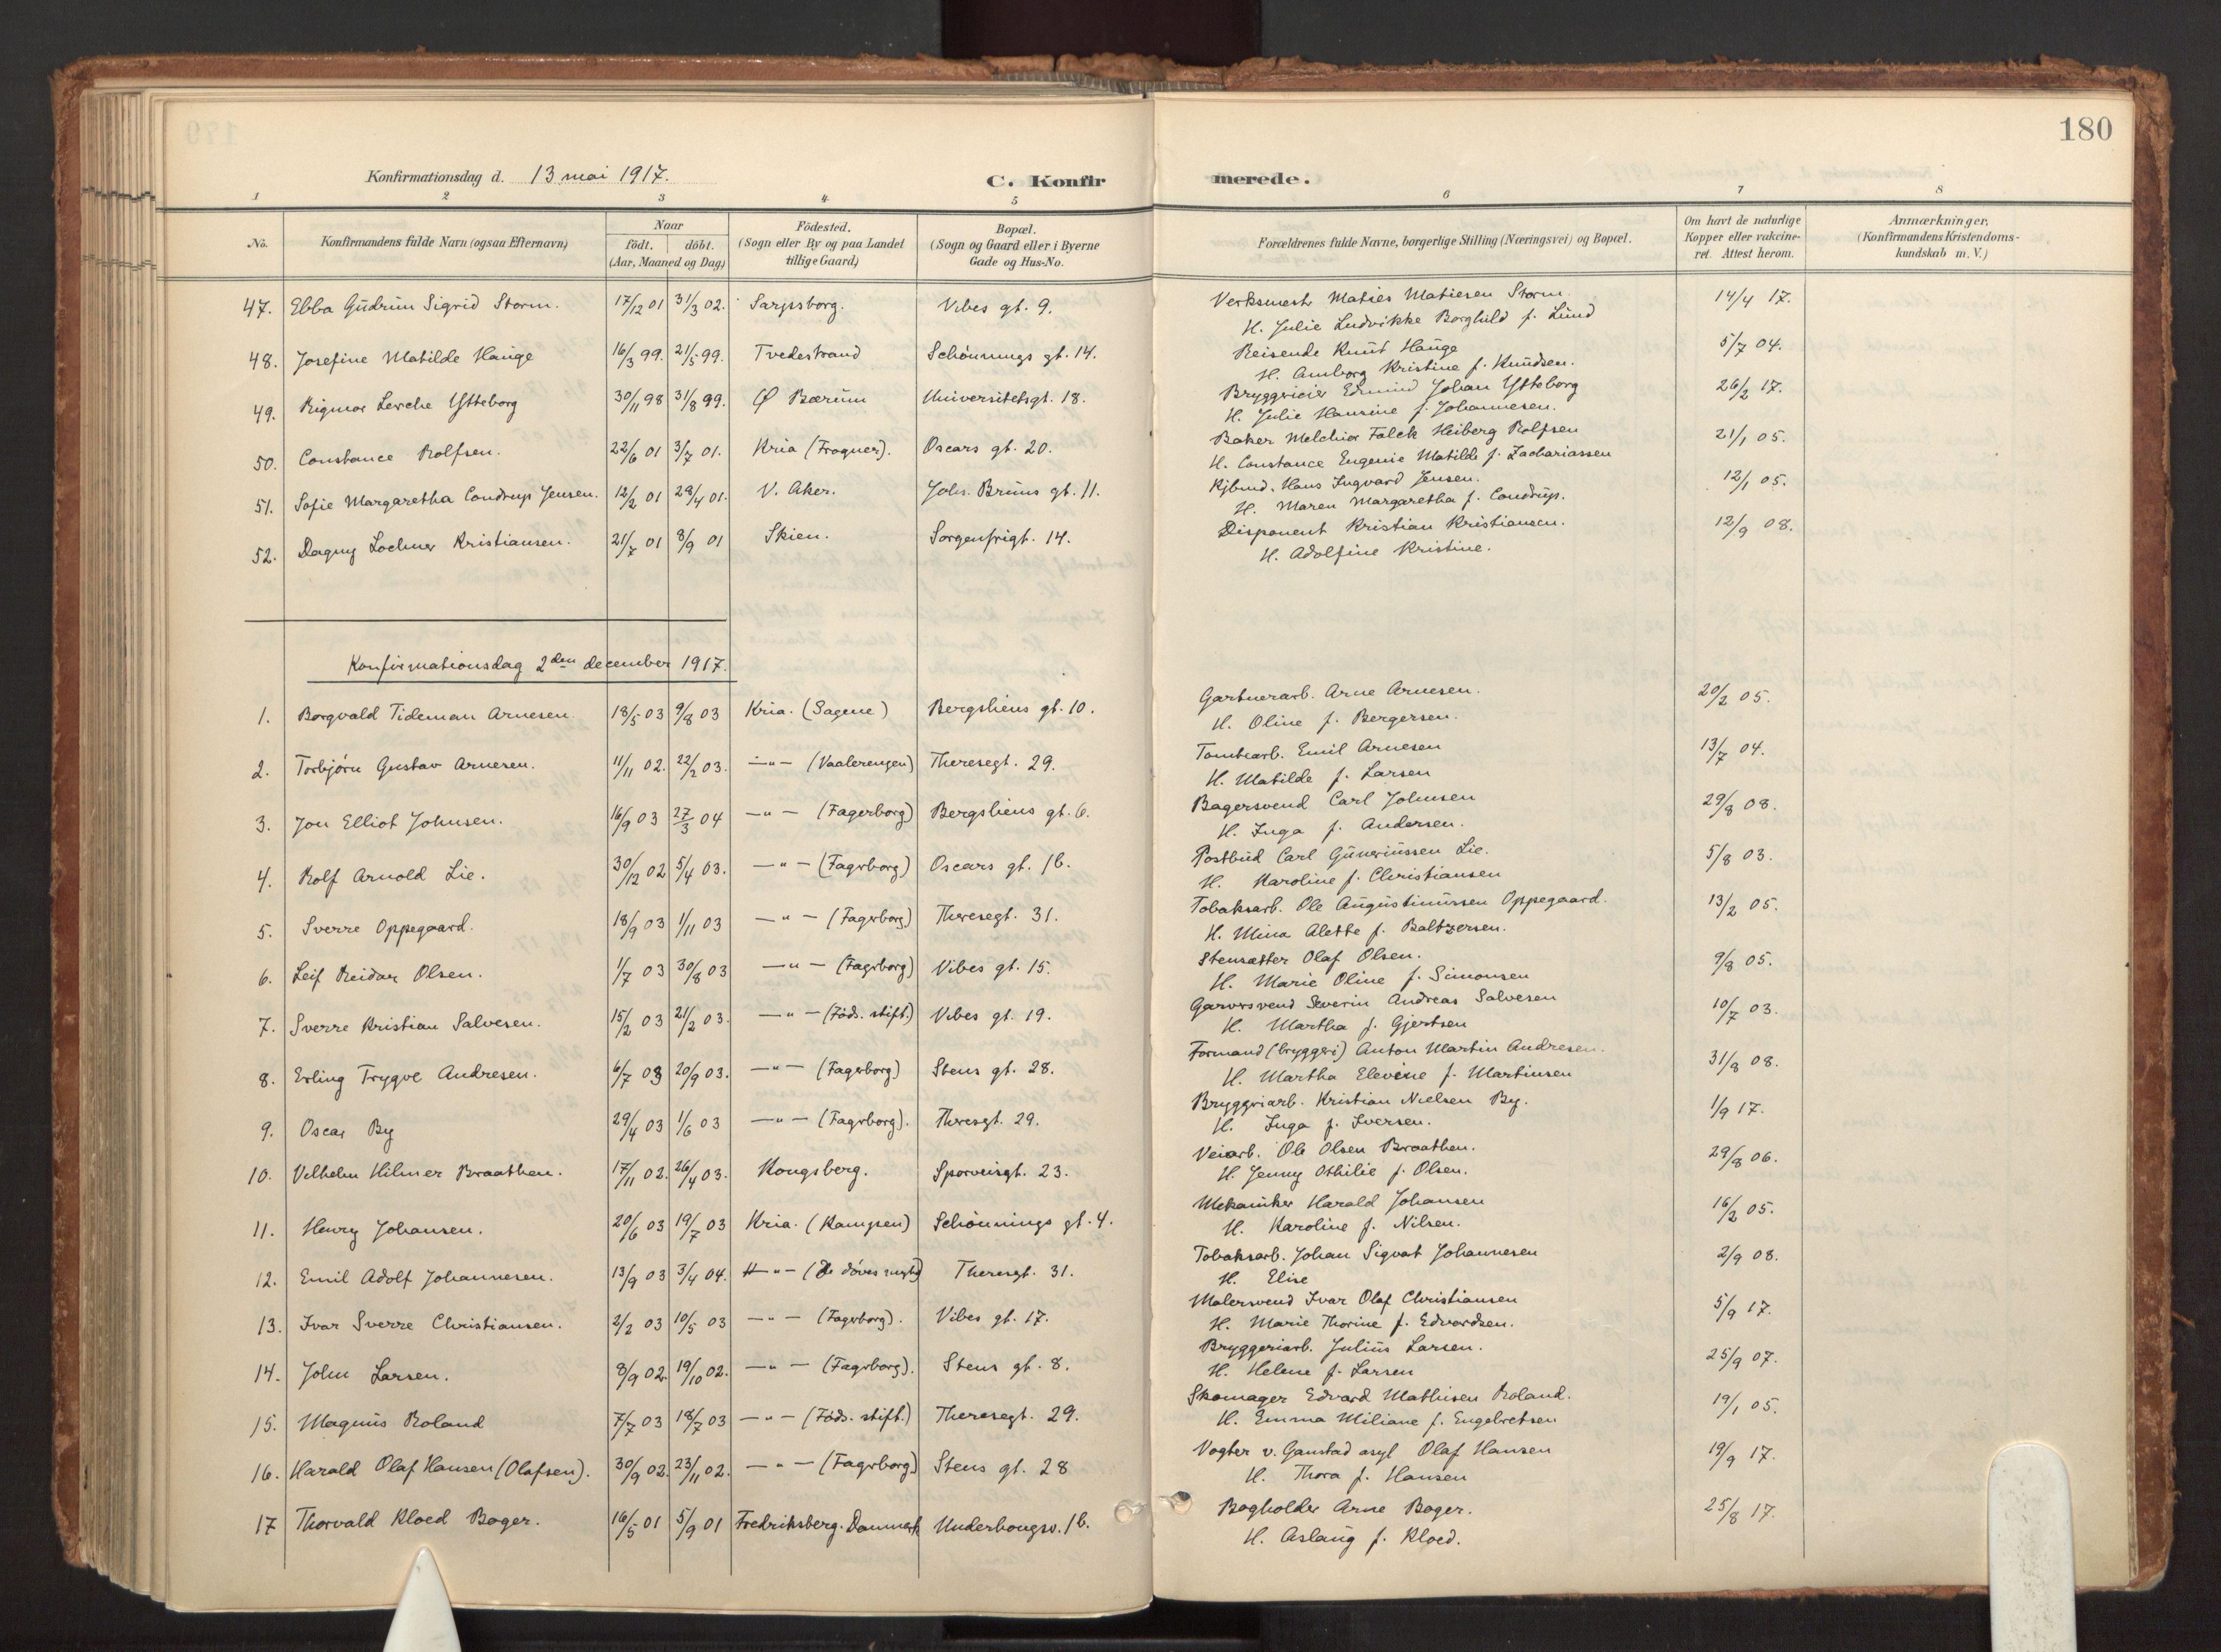 180
Konfirmationsdag d. 13 mai 1917.
C. Konfirmerede.
1 2 3 4 5 6 7 8
No.
Konfirmandens fulde Navn (ogsaa Efternavn)
Naar
födt. döbt.
(Aar, Maaned og Dag)
Födested.
(Sogn eller By og paa Landet
tillige Gaard)
Bopæl.
(Sogn og Gaard eller i Byerne
Gade og Hus-No.
Forældrenes fulde Navne, borgerlige Stilling (Næringsvei) og Bopæl.
Om havt de naturlige
Kopper eller vakcine-
ret. Attest herom.
Anmærkninger,
(Konfirmandens Kristendoms-
kundskab m. V.)
47. Ebba Gudrun Sigrid Storm. 17/12 01 31/3 02. Sarpsborg. Vibes gt. 9. Verksmestr Maties Matiesen Storm 14/4 17.
H. Julie Ludvikke Borghild f. Lund
48. Josefine Matilde Hauge 16/3 99. 21/5 99. Tvedestrand Schönnings gt. 14. Reisende Knut Hauge 5/7 04.
H. Amborg Kristine f. Knudsen.
49. Rigmor Lerche Ytteborg 30/11 98 31/8 99. Ø Bærum Universitetsgt. 18. Bryggerieier Edmund Johan Ytteborg 26/2 17.
H. Julie Hansine f. Johannesen.
50. Constance Rolfsen. 22/6 01 3/7 01. Kria (Frogner). Oscars gt. 20. Baker Melchior Falck Heiberg Rolfsen 21/1 05.
H. Constance Eugenie Matilde f. Zachariassen
51. Sofie Margaretha Condrup Jensen. 12/2 01 28/4 01. V. Aker. Johs. Bruns gt. 11. Kjbmd. Hans Ingvard Jensen. 12/1 05.
H. Maren Margaretha f. Condrup.
52. Dagny Lochner Kristiansen. 21/7 01 8/9 01 Skien. Sorgenfrigt. 14. Disponent Kristian Kristiansen. 12/9 08.
H. Adolfine Kristine.
Konfirmationsdag 2den december 1917.
1. Borgvald Tideman Arnesen 18/5 03 9/8 03 Kria. (Sagene) Bergsliens gt. 10. Gartnerarb. Arne Arnesen. 20/2 05.
H. Oline f. Bergersen.
2. Torbjörn Gustav Arnesen. 11/11 02. 22/2 03. —"— (Vaalerengen) Theresegt. 29. Tomtearb. Emil Arnesen 13/7 04.
H. Matilde f. Larsen
3. Jon Elliot Johnsen. 16/9 03 27/3 04 —"— (Fagerborg) Bergsliens gt. 6. Bagersvend Carl Johnsen 29/8 08.
H. Inga f. Andersen.
4. Rolf Arnold Lie. 30/12 02 5/4 03. —"— (Fagrborg) Oscars gt. 1b. Postbud Carl Guneriussen Lie. 5/8 03.
H. Karoline f. Christiansen
5. Sverre Oppegaard. 18/9 03 1/11 03 —"— (Fagerborg) Theresegt. 31. Tobaksarb. Ole Augustinussen Oppegaard. 13/2 05.
H. Mina Alette f. Baltzersen.
6. Leif Reidar Olsen. 1/7 03 30/8 03 —"— (Fagrborg) Vibes gt. 15. Stensætter Olaf Olsen. 9/8 05.
H. Marie Oline f. Simonsen
7. Sverre Kristian Salvesen. 15/2 03 21/2 03. —"— (Föds. stift.) Vibes gt. 19. Garversvend Severin Andreas Salvesen 10/7 03.
H. Martha f. Gjertsen
8. Erling Trygve Andresen. 6/7 03 20/9 03. —"— (Fagerborg) Stens gt. 28. Formand (bryggeri) Anton Martin Andresen. 31/8 08.
H. Martha Elevine f. Martinsen
9. Oscar By 29/4 03 1/6 03 —"— (Fagrborg). Thresgt. 29. Bryggriarb. Kristian Nielsen By. 1/9 17.
H. Inga f. Iversen.
10. Vilhelm Hilmer Braathen. 17/11 02. 26/4 03. Kongsberg. Sporveisgt. 23. Veiarb. Ole Olsen Braathen. 29/8 06.
H. Jenny Othilie f. Olsen.
11. Henry Johansen. 20/6 03 19/7 03 Kria. (Kampen) Schönnings gt. 4. Mekaniker Harald Johansen 16/2 05.
H. Karoline f. Nilsen.
12. Emil Adolf Johannesen. 13/9 03 3/4 04. —"— (De döves mght) Theresgt. 31. Tobaksarb. Johan Sigvat Johannesen 2/9 08.
H. Elise
13. Ivar Sverre Christiansen. 2/2 03 10/5 03 —"— (Fagerborg). Vibes gt. 17. Malersvend Ivar Olaf Christiansen 5/9 17.
H. Marie Thorine f. Edvardsen.
14. John Larsen. 8/9 02. 19/10 02. —"— (Fagrborg). Stens gt. 8. Bryggeriarb. Julius Larsen. 25/9 07.
H. Helene f. Larsen
15. Magnus Roland 7/7 03 18/7 03 —"— (Föds. stift.) Theresegt. 29. Skomager Edvard Mathisen Roland. 19/1 05.
H. Emma Miliane f. Engebretsen
16. Harald Olaf Hansen (Olafsen). 30/9 02. 23/11 02. —"— (Fagrborg) Stens gt. 28 Vogter v. Gaustad asyl Olaf Hansen 19/9 17.
H. Thora f. Hansen
17 Thorvald Kloed Bøger. 16/5 01 5/9 01 Fredriksberg. Danmark Underhougsv. 1b. Bogholder Arne Bøger. 25/8 17.
H. Aslaug f. Kloed.